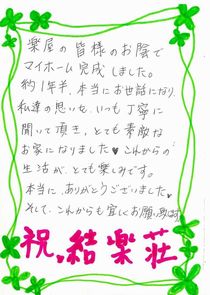 楽屋の皆様のお陰で
マイホーム完成しました。
約1年半、本当にお世話になり
私達の思いを、いつも丁寧に
聞いて頂き、とても素敵な
お家になりました♥これからの
生活が、とても楽しみです。
本当に、ありがとうございました♥
そして、これからも宜しくお願い致します
祝,結楽荘